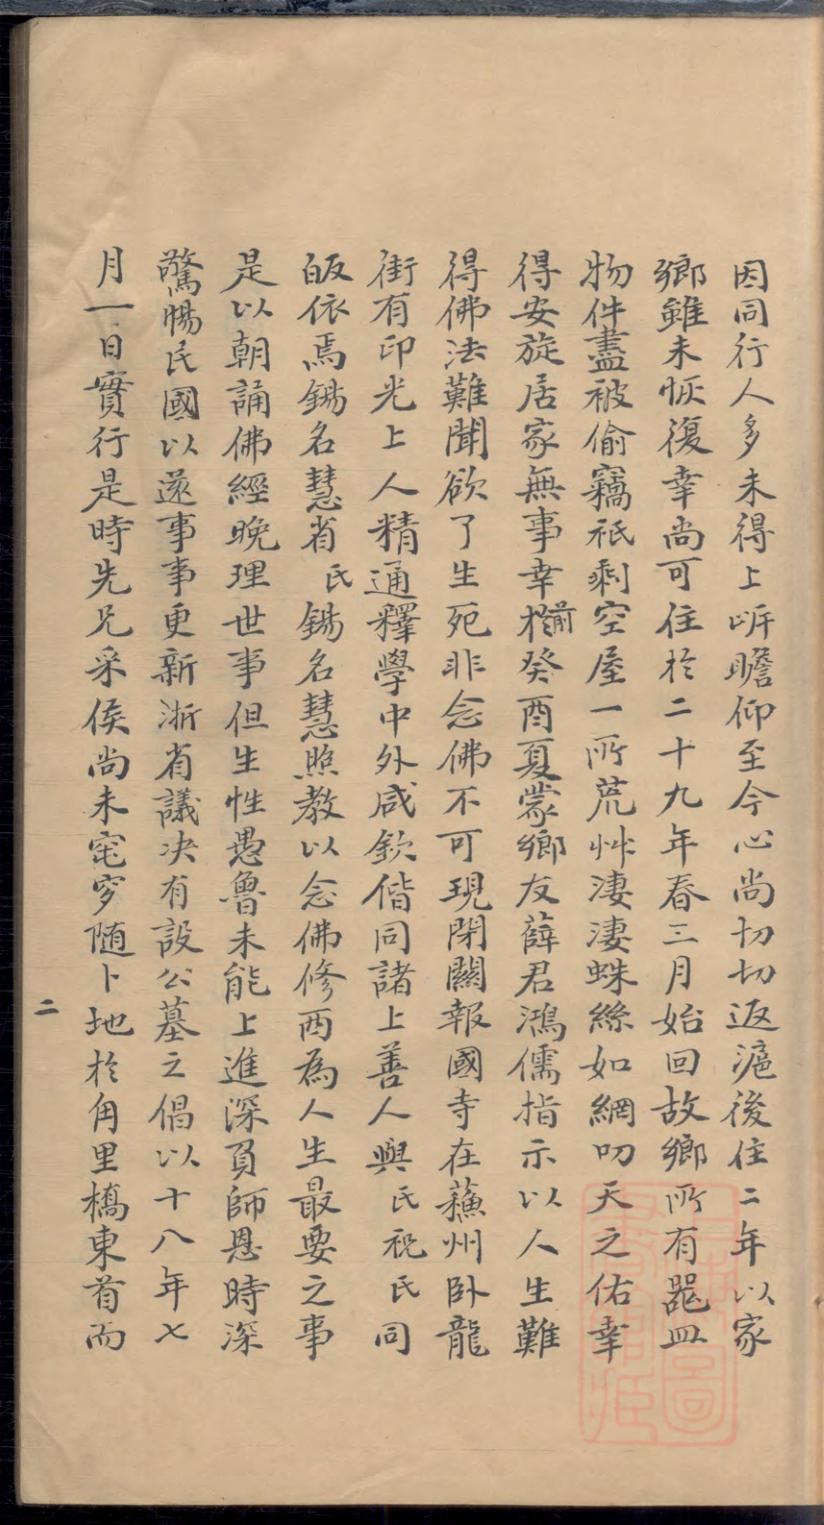 因同行人多未得上岸瞻仰至今心尚切切返滬後住二年以家
鄉雖未恢復幸尚可住於二十九年春三月始回故鄉所有器皿
物件盡被偷竊祇剩空屋一所荒艸淒淒蛛絲如網叨天之佑幸
得安旋居家無事幸於前癸酉夏蒙鄉友薛君鴻儒指示以人生難
得佛法難聞欲了生死非念佛不可現閉關報國寺在蘇州卧龍
街有印光上人精通釋學中外咸欽偕同諸上善人與氏祝氏同
皈依焉錫名慧省氏錫名慧照教以念佛修西為人生最要之事
是以朝誦佛經晚理世事但生性愚魯未能上進深負師恩時深
驚惕民國以還事事更新浙省議決有設公墓之倡以十八年七
月一日實行是時先兄采侯尚未窀穸随卜地於角里橋東首而
二